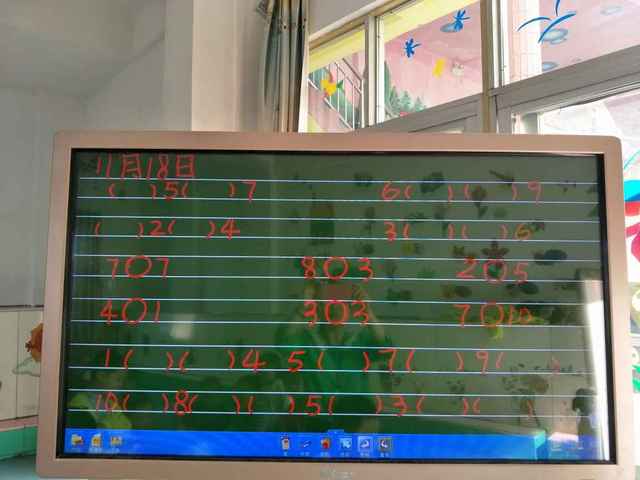 11月18日
( )5( )7 6( )( )9
( )2( )4 3( )( )6
7○7 8○3 2○5
4○1 3○3 7○10
1( )( )4 5( )7( )9( )
10( )8( )( )5( )3( )( )